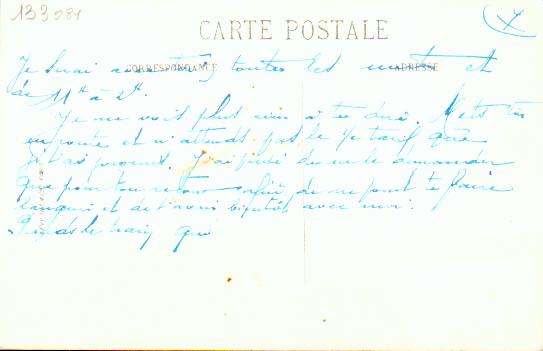 133 981
CARTE POSTALE
CORRESPONDANCE
ADRESSE
Je serai toutes les et
de 11h à 2h.
Je ne vois plus rien à te dire. Mets toi
en route et n'attends pas le que
je t'ai promis. J'ai de me le demander
que pour ton retour afin de ne point te faire
languir et de t'avoir bientôt avec moi.
Prends le train que